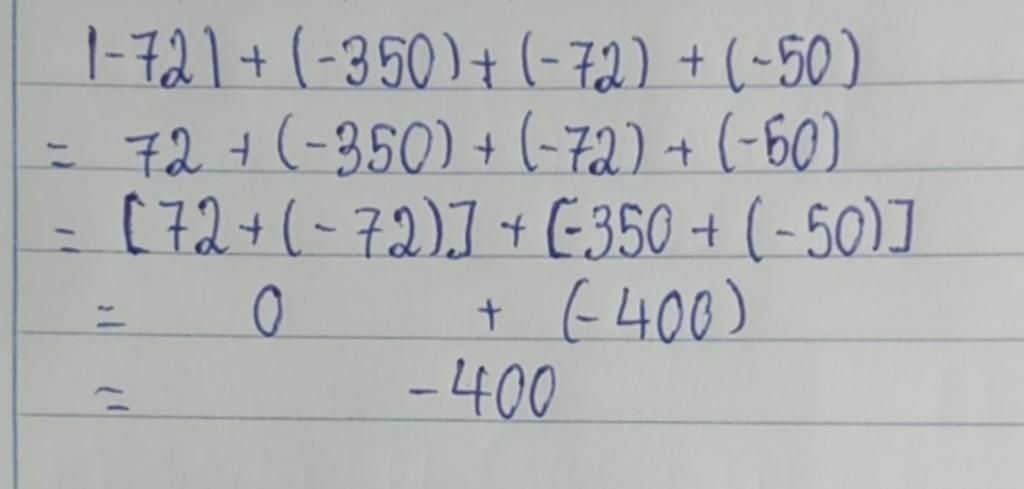 |-72| + (-350) + (-72) + (-50)
= 72 + (-350) + (-72) + (-50)
= [72 + (-72)] + [-350 + (-50)]
= 0 + (-400)
= -400